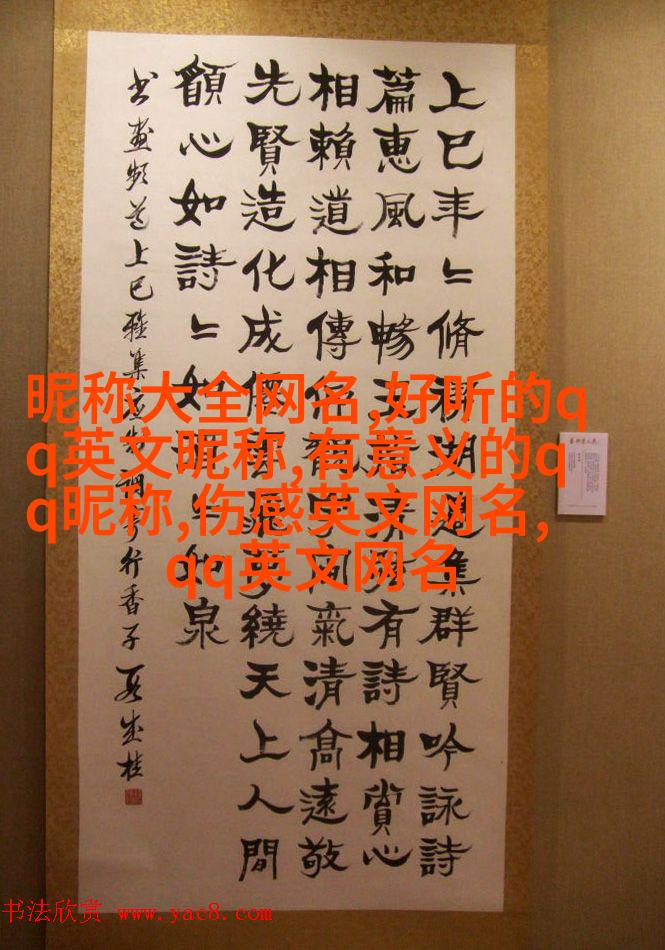 上巳年〻脩禊湖邊集群賢吟詠詩
篇惠風和暢有詩相賞心
相賴道相傳氣清高遠敬
先賢造化成夢繞天上人間
願心如詩〻如〻如泉
書畫頻道上巳雅集調寄行香子
昵称大全网名,好听的q
q英文昵称,有意义的q
q昵称,伤感英文网名,
qq英文网名
书法欣赏 www.yac8.com